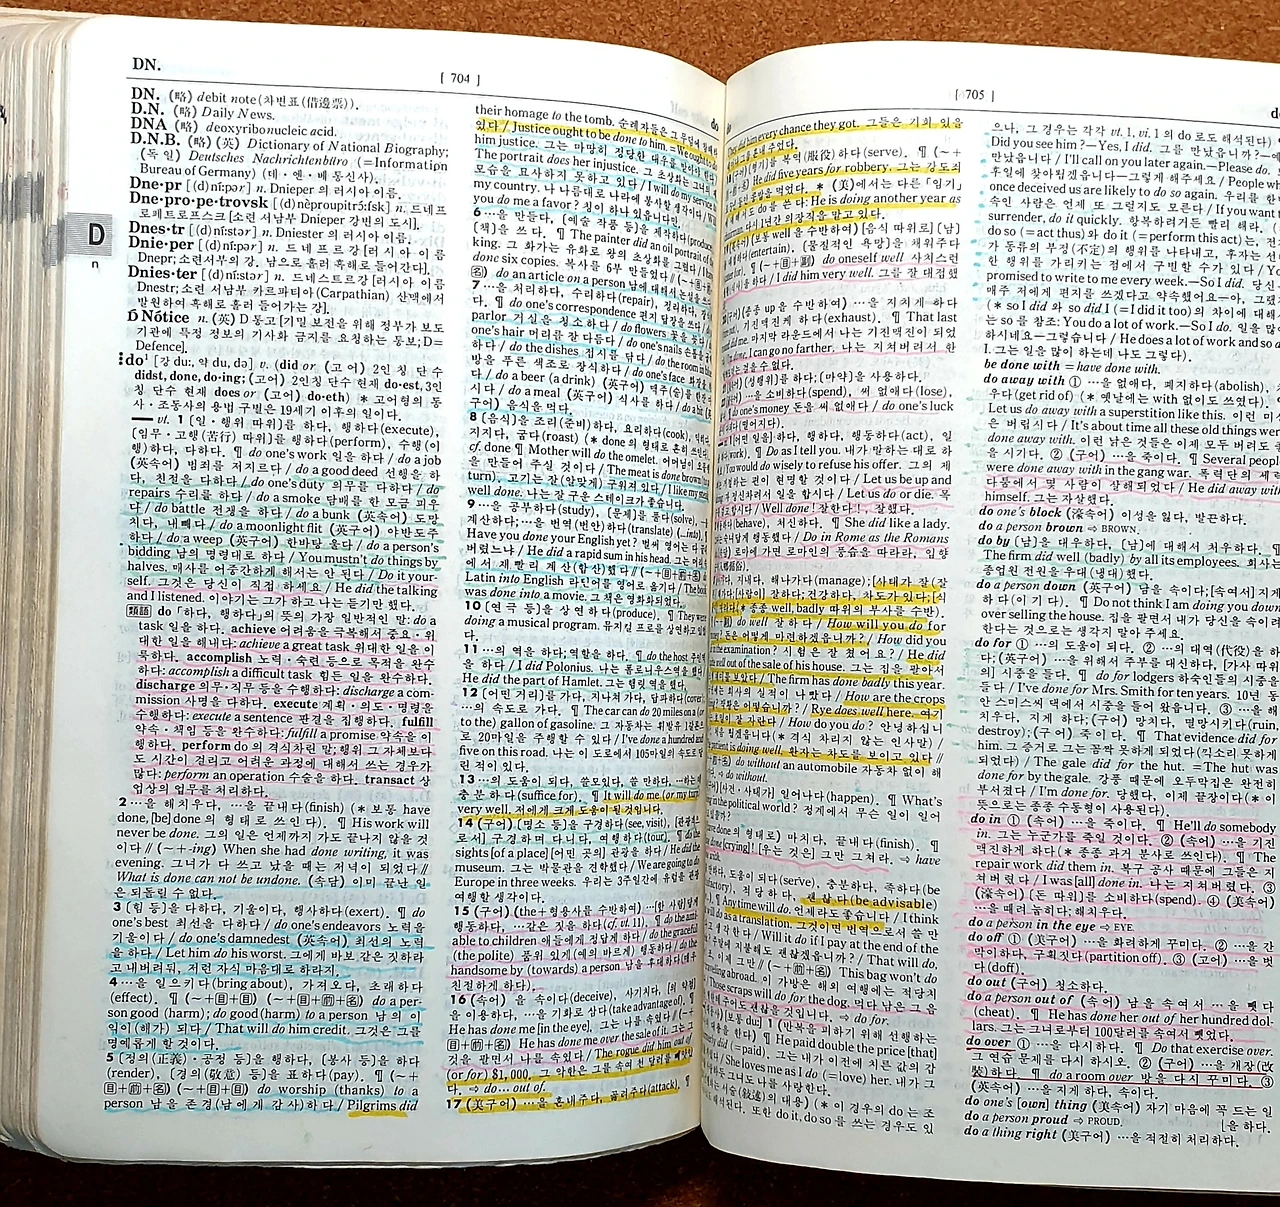 DN.
[ 704 ]
DN. (略) debit note(차변표(借邊票)).
D.N. (略) Daily News.
DNA (略) deoxyribonucleic acid.
D.N.B. (略) (英) Dictionary of National Biography;
(독일) Deutsches Nachrichtenbüro (=Information
Bureau of Germany) (데·엔·베 통신사).
Dne·pr [(d)níːpər] n. Dnieper 의 러시아 이름.
Dne·pro·pe·trovsk n. 드네프
로페트로프스크[소련 서남부 Dnieper 강변의 도시].
Dnes·tr [(d)níːstər] n. Dniester 의 러시아 이름.
Dnie·per [(d)níːpər] n. 드네프르강[러시아 이름
Dnepr; 소련서부의 강. 남으로 흘러 흑해로 들어간다].
Dnies·ter [(d)níːstər] n. 드네스트르강[러시아 이름
Dnestr; 소련 서남부 카르파티아(Carpathian) 산맥에서
발원하여 흑해로 흘러 들어가는 강].
D Nótice n. (英) D 통고[기밀 보전을 위해 정부가 보도
기관에 특정 정보의 기사화 금지를 요청하는 통보; D=
Defence].
D
n
do¹ [강 duː, 약 du, də] v. (did or (고어) 2인칭 단수
didst, done, do·ing; (고어) 2인칭 단수 현재 do·est, 3인
칭 단수 현재 does or (고어) do·eth) * 고어형의 동
사·조동사의 용법 구별은 19세기 이후의 일이다.
— vt. 1 [일·행위 따위]를 하다, 행하다(execute),
[임무·고행(苦行) 따위]를 행하다(perform), 수행(이
행)하다, 다하다. ¶ do one's work 일을 하다 / do a job
(英속어) 범죄를 저지르다 / do a good deed 선행을 하
다, 친절을 다하다 / do one's duty 의무를 다하다 / do
repairs 수리를 하다 / do a smoke 담배를 한 모금 피우
다 / do battle 전쟁을 하다 / do a bunk (英속어) 도망
치다, 내빼다 / do a moonlight flit (英구어) 야반도주
하다 / do a weep (英구어) 한바탕 울다 / do a person's
bidding 남의 명령대로 하다 / You mustn't do things by
halves. 매사를 어중간하게 해서는 안 된다 / Do it your-
self. 그것은 당신이 직접 하세요 / He did the talking
and I listened. 이야기는 그가 하고 나는 듣기만 했다.
類語 do 「하다, 행하다」의 뜻의 가장 일반적인 말: do a
task 일을 하다. achieve 어려움을 극복해서 중요·위
대한 일을 해내다: achieve a great task 위대한 일을 이
룩하다. accomplish 노력·숙련 등으로 목적을 완수
하다: accomplish a difficult task 힘든 일을 완수하다.
discharge 의무·직무 등을 수행하다: discharge a com-
mission 사명을 다하다. execute 계획·의도·명령을
수행하다: execute a sentence 판결을 집행하다. fulfill
약속·책임 등을 완수하다: fulfill a promise 약속을 이
행하다. perform do 의 격식차린 말; 행위 그 자체보다
도 시간이 걸리고 어려운 과정에 대해서 쓰는 경우가
많다: perform an operation 수술을 하다. transact 상
업상의 업무를 처리하다.
2 …을 해치우다, …을 끝내다(finish) (* 보통 have
done, [be] done 의 형태로 쓰인다). ¶ His work will
never be done. 그의 일은 언제까지 가도 끝나지 않을 것
이다 // (~+-ing) When she had done writing, it was
evening. 그녀가 다 쓰고 났을 때는 저녁이 되었다 //
What is done can not be undone. (속담) 이미 끝난 일
은 되돌릴 수 없다.
3 [힘 등]을 다하다, 기울이다, 행사하다(exert). ¶ do
one's best 최선을 다하다 / do one's endeavors 노력을
기울이다 / do one's damnedest (英속어) 최선의 노력
을 하다 / Let him do his worst. 그에게 바보 같은 짓하라
고 내버려둬, 저런 자식 마음대로 하라지.
4 …을 일으키다(bring about), 가져오다, 초래하다
(effect). ¶ (~+目+目) (~+目+前+名) do a per-
son good (harm); do good (harm) to a person 남의 이
익이(해가) 되다 / That will do him credit. 그것은 그를
명예롭게 할 것이다.
5 [정의(正義)·공정 등]을 행하다, [봉사 등]을 하다
(render), [경의(敬意) 등]을 표하다(pay). ¶ (~+
目+前+名) (~+目+目) do worship (thanks) to a
person 남을 존경(남에게 감사)하다 / Pilgrims did
their homage to the tomb.
him justice.
The portrait does her injustice.
모습을 묘사하지 못하고 있다 / I will do
my country. 나 나름대로 나라에 봉사할 생각이다
you do me a favor? 청이 하나 있읍니다.
6 …을 만들다, [예술 작품 등]을 제작하다(produce)
[책]을 쓰다. ¶ The painter did an oil portrait of
king. 그 화가는 유화로 왕의 초상화를 그렸다
done six copies. 복사를 6부 만들었다
名) do an article on a person 남에 대해서 논설을
7 …을 처리하다, 수리하다(repair), 정리하다,
다. ¶ do one's correspondence 편지 답장을 쓰다
parlor 거실을 청소하다 / do flowers 꽃을
one's hair 머리를 잘 다듬다 / do one's nails 손톱을
하다 / do the dishes 접시를 닦다 / do the room in blue
방을 푸른 색조로 장식하다 / do one's face 화장을
다 / do a beer (a drink) (英구어) 맥주(술)를
시다 / do a meal (英구어) 식사를 하다
구어) 음식을 먹다.
8 [음식]을 조리(준비)하다, 요리하다(cook),
지지다, 굽다(roast) (* done 의 형태로 흔히
cf. done ¶ Mother will do the omelet. 어머님이
을 만들어 주실 것이다 / The meat is done brown
turn). 고기는 잘(알맞게) 구워져 있다 / I like my
well done. 나는 잘 구운 스테이크가 좋습니다.
9 …을 공부하다(study), [문제]를 풀다(solve),
계산하다; …을 번역(번안)하다(translate)
Have you done your English yet? 벌써 영어는 다
버렸느냐 / He did a rapid sum in his head. 그는
에서 재빨리 계산(합산)했다 // (~+目+前+名)
Latin into English 라틴어를 영어로 옮기다 / The book
was done into a movie. 그 책은 영화화되었다.
10 [연극 등]을 상연하다(produce). ¶ They were
doing a musical program. 뮤지컬 프로를 상연하고
다.
11 …의 역을 하다; 역할을 하다. ¶ do the host 주인
을 하다 / I did Polonius. 나는 폴로니우스역을 했다
He did the part of Hamlet. 그는 햄릿 역을 했다.
12 [어떤 거리]를 가다, 지나쳐 가다, 답파하다(cover)
…의 속도로 가다. ¶ The car can do 20 miles on a
to the) gallon of gasoline. 그 자동차는 휘발유 1갤런으
로 20마일을 주행할 수 있다 / I've done a hundred and
five on this road. 나는 이 도로에서 105마일의 속도로
린 적이 있다.
13 …의 도움이 되다, 쓸모있다, 쓸 만하다,
충분하다(suffice for). ¶ It will do me (or my turn)
very well. 저에게 크게 도움이 될 것입니다.
14 (구어) [명소 등]을 구경하다(see, visit),
로서] 구경하며 다니다, 여행하다(tour). ¶ do the
sights [of a place] [어떤 곳의] 관광을 하다 / He did the
museum. 그는 박물관을 견학했다 / We are going to do
Europe in three weeks. 우리는 3주일간에 유럽을 관광
여행할 생각이다.
15 (구어) (the+형용사를 수반하여)
행동하다, …같은 짓을 하다(cf. vi. 11). ¶ do the ami-
able to children 애들에게 정답게 하다 / do the graceful
(the polite) 품위 있게(예의 바르게) 행동하다 / do the
handsome by (towards) a person 남을 후대하다
친절하게 하다.
16 (속어) 을 속이다(deceive), 사기치다,
을 이용하다, …을 기화로 삼다(take advantage of). ¶
He has done me [in the eye]. 그는 나를 속였다
目+前+名) He has done me over the sale of it. 그는
것을 팔면서 나를 속였다 / The rogue did him out of
(or for) $1,000. 그 악한은 그를 속여 천 달러를
다. ⇨ do… out of.
17 (美구어) …을 혼내주다, 골려주다(attack). ¶
[ 705 ]
every chance they got. 그들은 기회 있을
을 혼내주었다.
복역(服役)하다(serve). ¶ (~+
He did five years for robbery. 그는 강도죄
* (美)에서는 다른 「임기」
He is doing another year as
의장직을 맡고 있다.
(보통 well 을 수반하여) [음식 따위로] [남]
(entertain). [물질적인 욕망]을 채워주다
(~+目+副) do oneself well 사치스런
I did him very well. 그를 잘 대접했
수반하여) …을 지치게 하다
(exhaust). ¶ That last
마지막 라운드에서 나는 기진맥진이 되었
I can go no farther. 나는 지쳐버려서 한
[성행위]를 하다; [마약]을 사용하다.
…을 소비하다(spend), 써 없애다(lose),
do one's money 돈을 써 없애다 / do one's luck
[어떤 일]을 하다, 행하다, 행동하다(act), 일
¶ Do as I tell you. 내가 말하는 대로 하
You would do wisely to refuse his offer. 그의 제
하는 편이 현명할 것이다 / Let us be up and
정신차려서 일을 합시다 / Let us do or die. 목
Well done! 잘한다!, 잘했다.
(behave), 처신하다. ¶ She did like a lady.
행동했다 / Do in Rome as the Romans
로마에 가면 로마인의 풍습을 따라라, 입향
지내다, 해나가다(manage); [사태가 잘(잘
[사람이] 잘하다; 건강하다, 차도가 있다; [식
* 종종 well, badly 따위의 부사를 수반).
do well 잘 하다 / How will you do for
돈은 어떻게 마련하겠읍니까? / How did you
the examination? 시험은 잘 쳤어요? / He did
well out of the sale of his house. 그는 집을 팔아서
The firm has done badly this year.
회사의 실적이 나빴다 / How are the crops
Rye does well here. 여기
How do you do? 안녕하십니
(* 격식 차리지 않는 인사말) /
patient is doing well. 환자는 차도를 보이고 있다 //
do without an automobile 자동차 없이 해
⇨ do without.
[사건·사태] 일어나다(happen). ¶ What's
in the political world? 정계에서 무슨 일이 일어
done 의 형태로) 마치다, 끝내다(finish). ¶
done [crying]! [우는 것은] 그만 그쳐라. ⇨ have
도움이 되다(serve), 충분하다, 족하다(be
적당하다, 괜찮다(be advisable)
¶ Any time will do. 언제라도 좋습니다 / I think
will do as a translation. 그것이면 번역으로서 쓸 만
Will it do if I pay at the end of the
지불해도 괜찮겠읍니까? / That will do.
그만 // (~+前+名) This bag won't do
abroad. 이 가방은 해외 여행에는 적당치
Those scraps will do for the dog. 먹다 남은 그
개에게 주어도 괜찮을 것입니다. ⇨ do for.
[보통 du] 1 (반복을 피하기 위해 선행하는
¶ He paid double the price [that]
did (=paid). 그는 내가 이전에 치른 값의 갑
She loves me as I do (=love) her. 내가 그
그녀도 나를 사랑한다.
서술(敍述)의 내용) (* 이 경우의 do 는 조
해석된다). 또한 do it, do so 를 쓰는 경우도 있
으나, 그 경우는 각각 vt. 1, vi. 1 의 do 로도 해석된다)
Did you see him?—Yes, I did. 그를 만났읍니까?—예
만났읍니다 / I'll call on you later again.—Please do.
후일에 찾아뵙겠읍니다—그렇게 해주세요 / People who
once deceived us are likely to do so again. 우리를 한
속인 사람은 언제 또 그럴지도 모른다 / If you want to
surrender, do it quickly. 항복하려거든 빨리 해라.
do so (=act thus)와 do it (=perform this act)는,
가 동류의 부정(不定)의 행위를 나타내고, 후자는
한 행위를 가리키는 점에서 구별할 수가 있다 / You
promised to write to me every week.—So I did. 당신
매주 저에게 편지를 쓰겠다고 약속했어요—아, 그랬
(* so I did 와 so did I (=I did it too)의 차이에 대해
는 so 를 참조: You do a lot of work.—So I do. 일을
하시네요—그렇습니다 / He does a lot of work and so do
I. 그는 일을 많이 하는데 나도 그렇다).
be done with = have done with.
do away with ① …을 없애다, 폐지하다(abolish),
우다(get rid of) (* 옛날에는 with 없이도 쓰였다).
Let us do away with a superstition like this. 이런 미
은 버립시다 / It's about time all these old things were
done away with. 이런 낡은 것들은 이제 모두 버려도
을 시기다. ② (구어) …을 죽이다. ¶ Several people
were done away with in the gang war. 폭력단의 세력
다툼에서 몇 사람이 살해되었다 / He did away with
himself. 그는 자살했다.
do one's block (濠속어) 이성을 잃다, 발끈하다.
do a person brown ⇨ BROWN.
do by [남]을 대우하다, [남]에 대해서 처우하다. ¶
The firm did well (badly) by all its employees. 회사는
종업원 전원을 우대(냉대)했다.
do a person down (英구어) 남을 속이다; [속여서]
하다(이기다). ¶ Do not think I am doing you down
over selling the house. 집을 팔면서 내가 당신을 속이려
한다는 것으로는 생각지 말아 주세요.
do for ① …의 도움이 되다. ② …의 대역(代役)을 하
다; (英구어) …을 위해서 주부를 대신하다, [가사 따위]
의 시중을 들다. ¶ do for lodgers 하숙인들의 시중을
들다 / I've done for Mrs. Smith for ten years. 10년 동
안 스미스씨 댁에서 시중을 들어 왔읍니다. ③ …을 해
치우다, 지게 하다; (구어) 망치다, 멸망시키다(ruin,
destroy); (구어) 죽이다. ¶ That evidence did for
him. 그 증거로 그는 꼼짝 못하게 되었다(끽소리 못하게
되었다) / The gale did for the hut. =The hut was
done for by the gale. 강풍 때문에 오두막집은 완전히
부서졌다 / I'm done for. 당했다, 이제 끝장이다(* 이
뜻으로는 종종 수동형이 사용된다).
do in ① (속어) …을 죽이다. ¶ He'll do somebody
in. 그는 누군가를 죽일 것이다. ② (속어) …을 기진
맥진하게 하다(* 종종 과거 분사로 쓰인다). ¶ The
repair work did them in. 복구 공사 때문에 그들은 지
쳐 버렸다 / I was [all] done in. 나는 지쳐버렸다. ③
(濠속어) [돈 따위]를 소비하다(spend). ④ (美속어)
…을 때려 눕히다; 해치우다.
do a person in the eye ⇨ EYE.
do off ① (美구어) …을 화려하게 꾸미다. ② …을 간
막이하다, 구획짓다(partition off). ③ (고어) …을 벗
다(doff).
do out (구어) 청소하다.
do a person out of (속어) 남을 속여서 …을 뺏다
(cheat). ¶ He has done her out of her hundred dol-
lars. 그는 그녀로부터 100달러를 속여서 뺏었다.
do over ① …을 다시하다. ¶ Do that exercise over.
그 연습 문제를 다시 하시오. ② (구어) …을 개장(改
裝)하다. ¶ do a room over 방을 다시 꾸미다. ③
(英속어) …을 지게 하다, 속이다.
do one's [own] thing (美속어) 자기 마음에 꼭 드는 일
do a person proud ⇨ PROUD. [을 하다.
do a thing right (美구어) …을 적절히 처리하다.